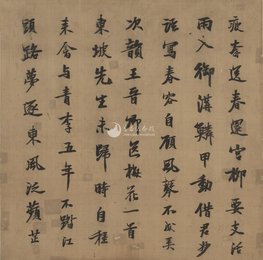 送春還宮柳
雨入御溝鱗甲動借君妙
語寫春容自顧風琴不成
次韻王晉卿送梅花一首
東坡先生未歸時自種
來禽與青李五年不踏江
頭路夢逐東風泛蘋芷